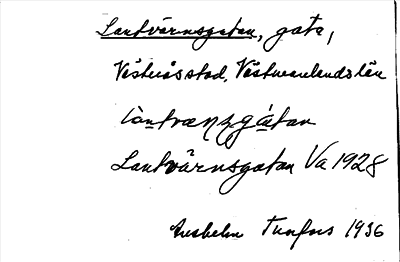 Lantvärnsgatan, gata,
Västerås stad, Västmanlands län
làntvæṇṣgátan
Lantvärnsgatan Va 1928
Tunfors 1936